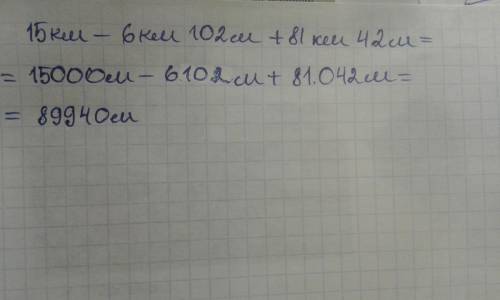 15км - 6км 102м + 81 км 42м =
= 15000м - 6102м + 81.042м =
= 89940м